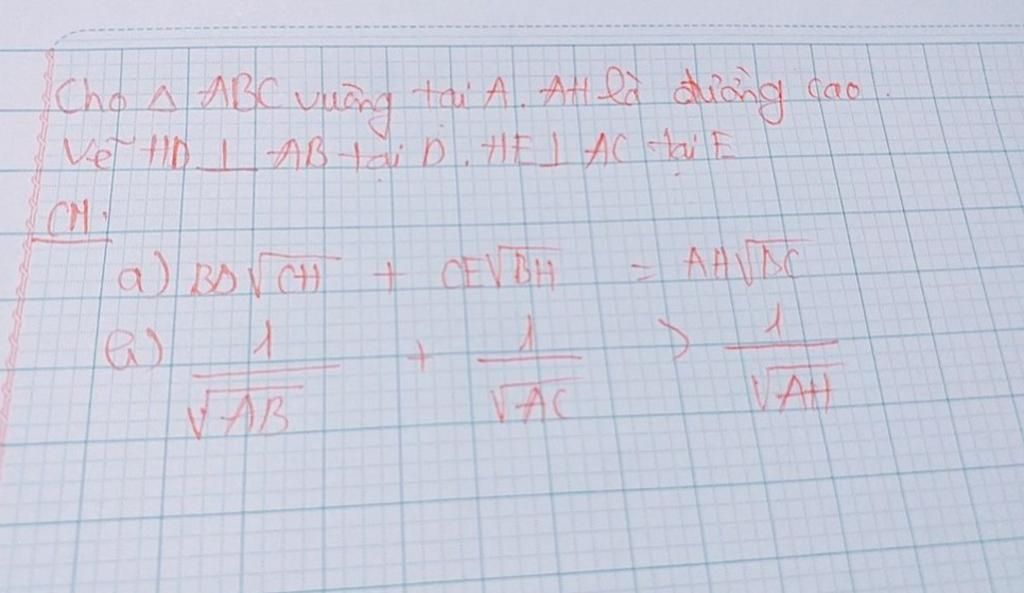 Cho Δ ABC vuông tại A. AH là đường cao.
Vẽ HD ⊥ AB tại D. HE ⊥ AC tại E
CM:
a) BD√CH + CE√BH = AH√BC
b) 1/√AB + 1/√AC > 1/√AH